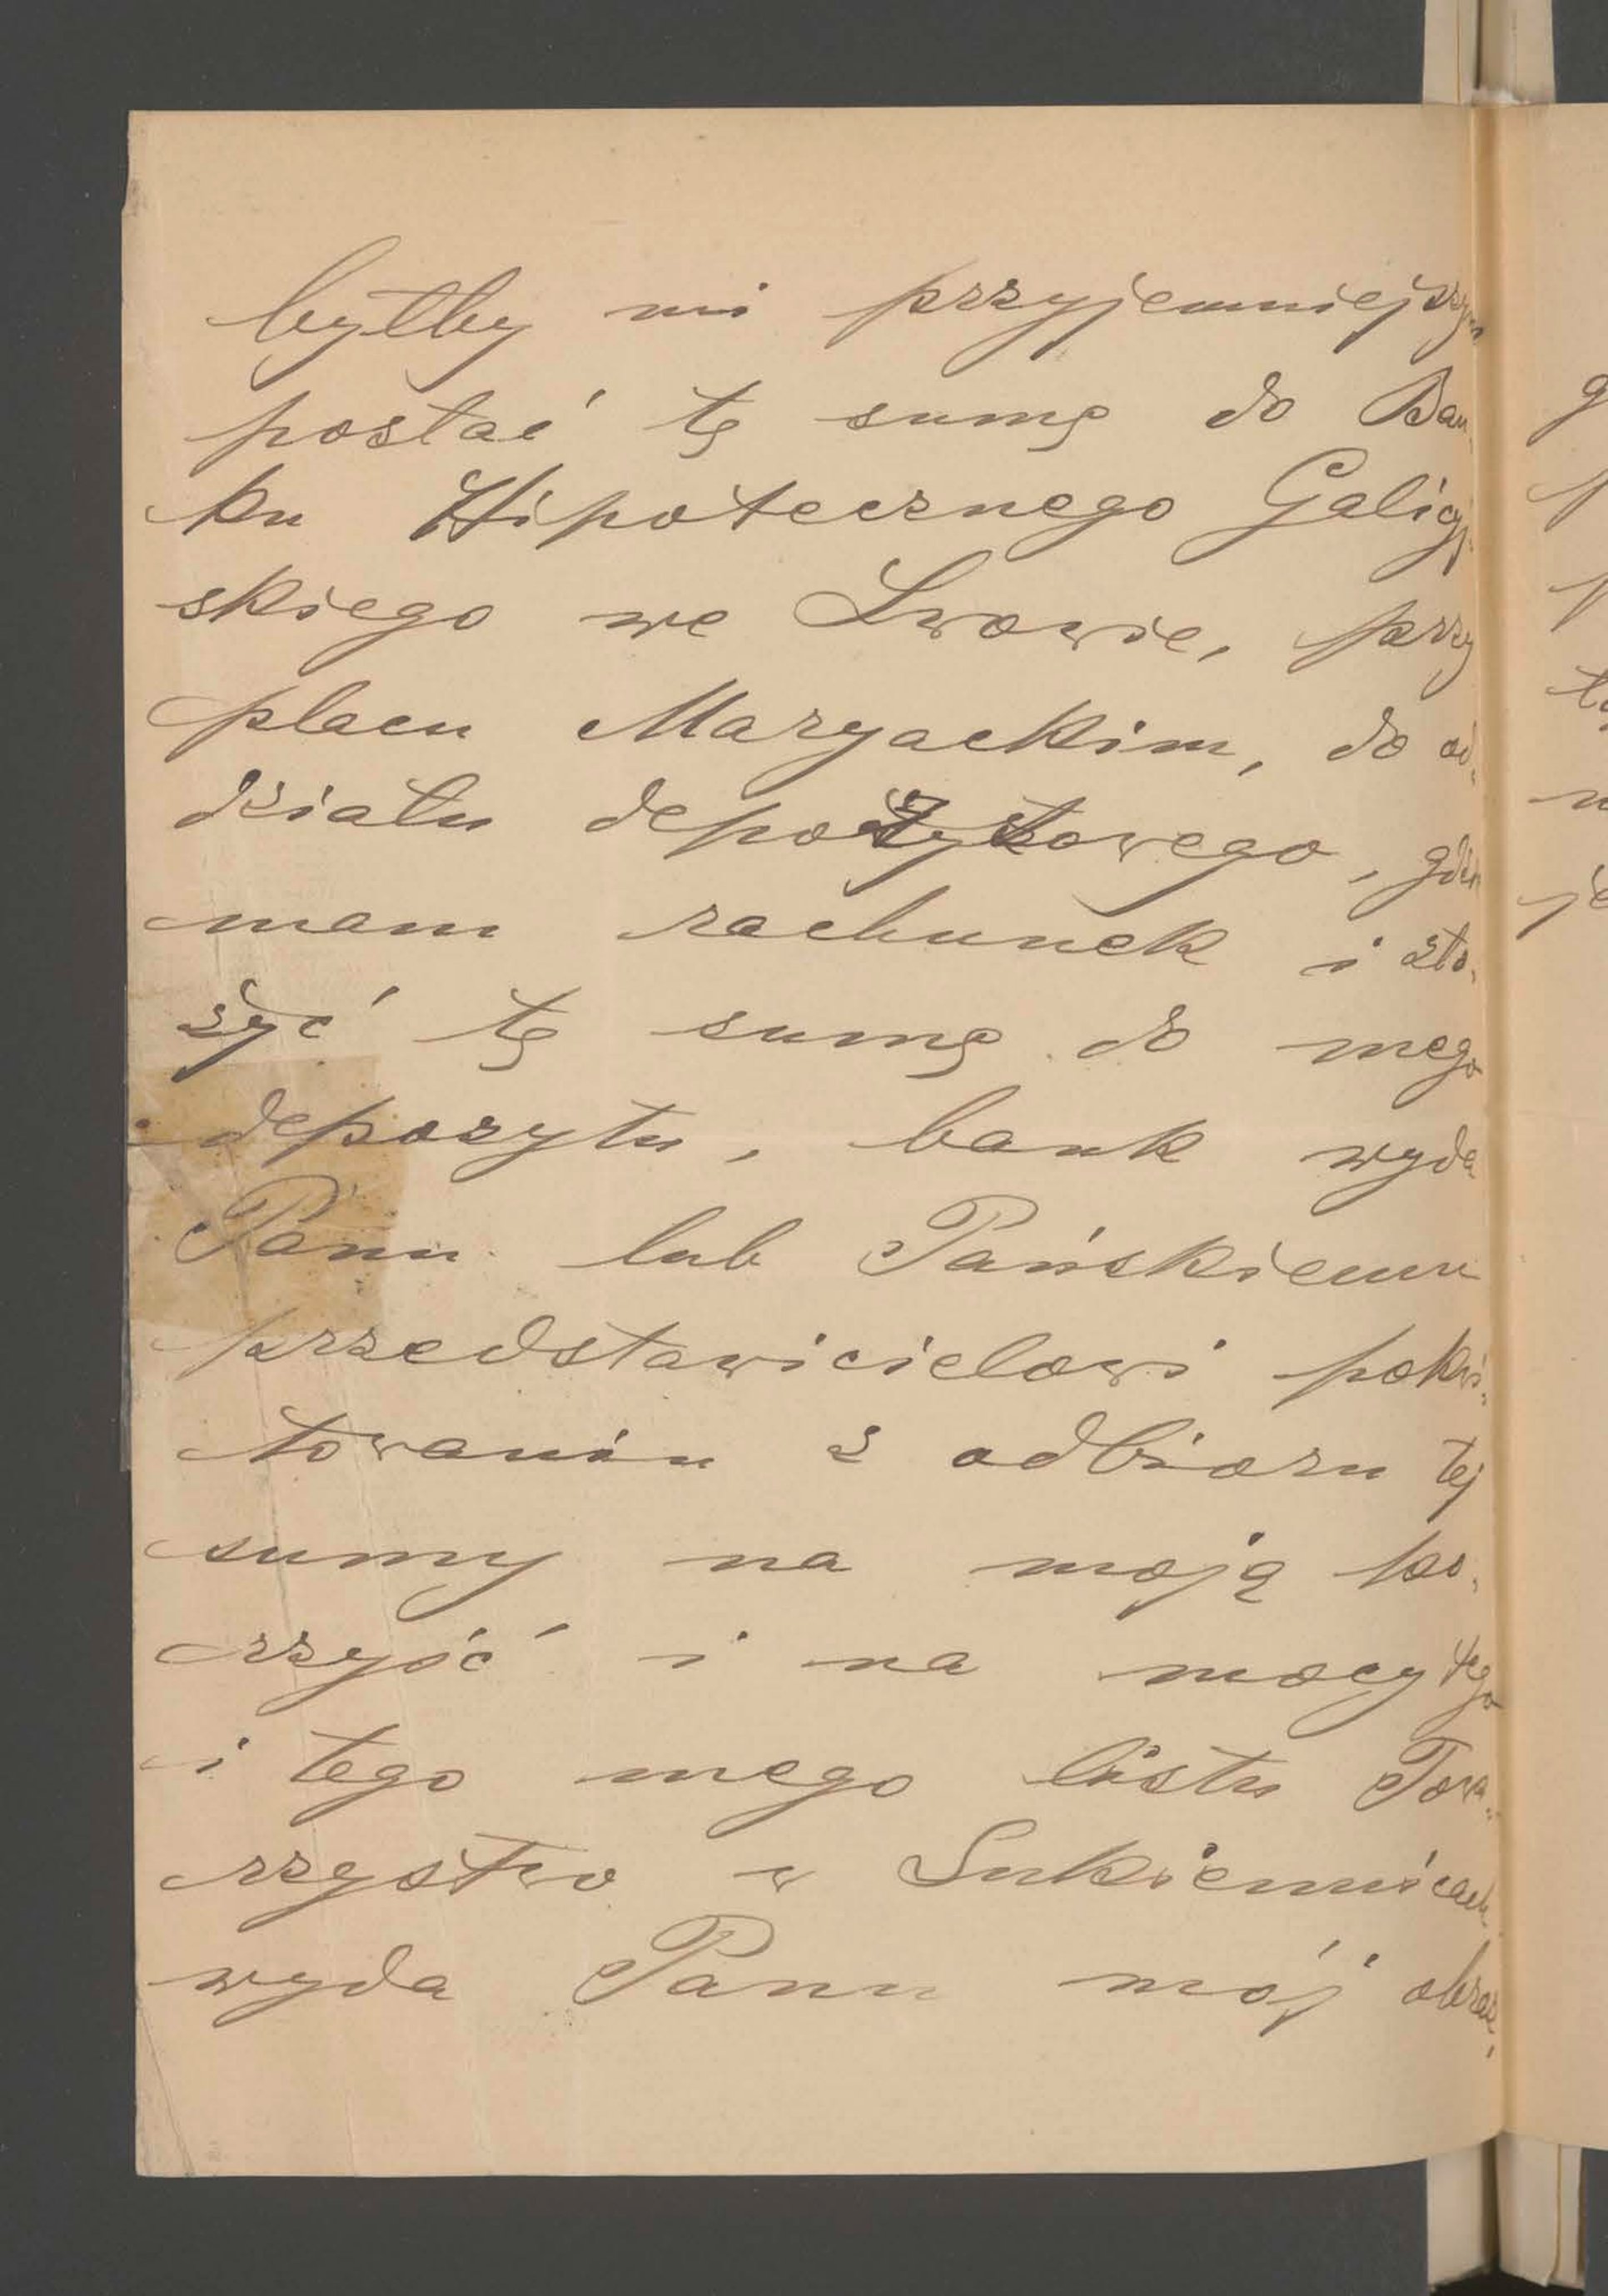 byłby mi przyjemniejszym
posłać tę sumę do Ban-
ku Hipotecznego Galicyj-
skiego we Lwowie, przy
placu Maryackim, do od-
działu depozytowego, gdzie
mam rachunek i zło-
żyć tę sumę do mego
depozytu, bank wyda
Panu lub Pańskiemu
przedstawicielowi pokwi-
towaniu z odbioru tej
sumy na moją ko-
rzyść i na mocy tego
i tego mego listu Towa-
rzystwo w Sukiennicach
wyda Panu mój obraz,